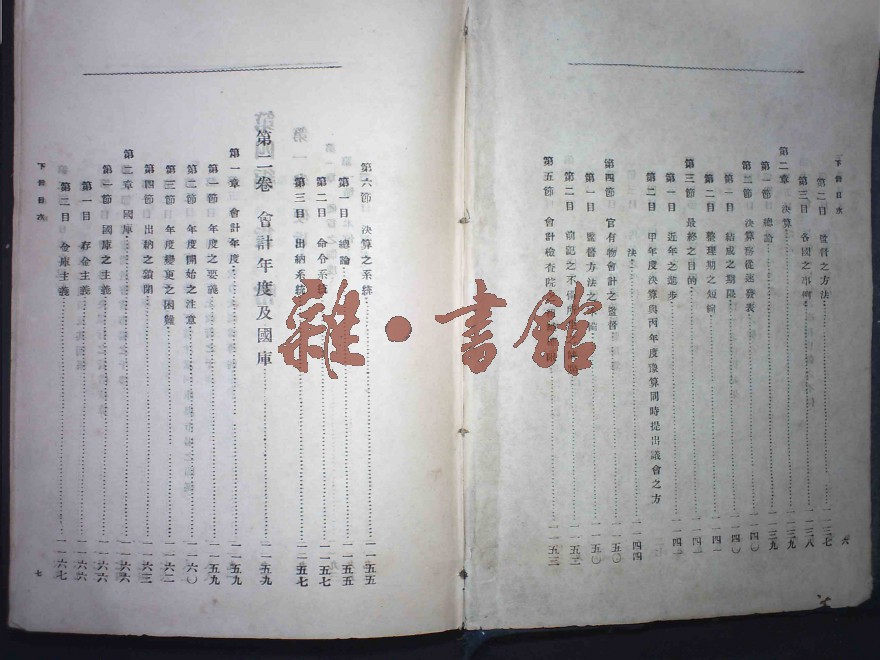 下冊目次
第二目 監督之方法……一一三七
第三目 各國之事例……一一三八
第二章 決算……一一三九
第一節 總論……一一三九
第二節 決算務從速發表……一一四〇
第一目 結成之期限……一一四〇
第二目 整理期之短縮……一一四一
第三節 最終之目的……一一四二
第一目 近年之進步……一一四二
第二目 甲年度決算與丙年度豫算同時提出議會之方
法……一一四四
第四節 官有物會計之監督……一一五〇
第一目 監督方法之
第二目 前記之不備
第五節 會計檢查院
六
第六節 決算之系統……一一五五
第一目 總論……一一五五
第二目 命令系統……一一五七
第三目 出納系統……一一五七
第二卷 會計年度及國庫……一一五九
第一章 會計年度……一一五九
第一節 年度之要義……一一五九
第二節 年度開始之注意……一一六〇
第三節 年度變更之困難……一一六二
第四節 出納之鎖閉……一一六三
第二章 國庫……一一六六
第一節 國庫之主義……一一六六
第一目 存金主義……一一六六
第二目 金庫主義……一一六七
下冊目次
七
雜·書館